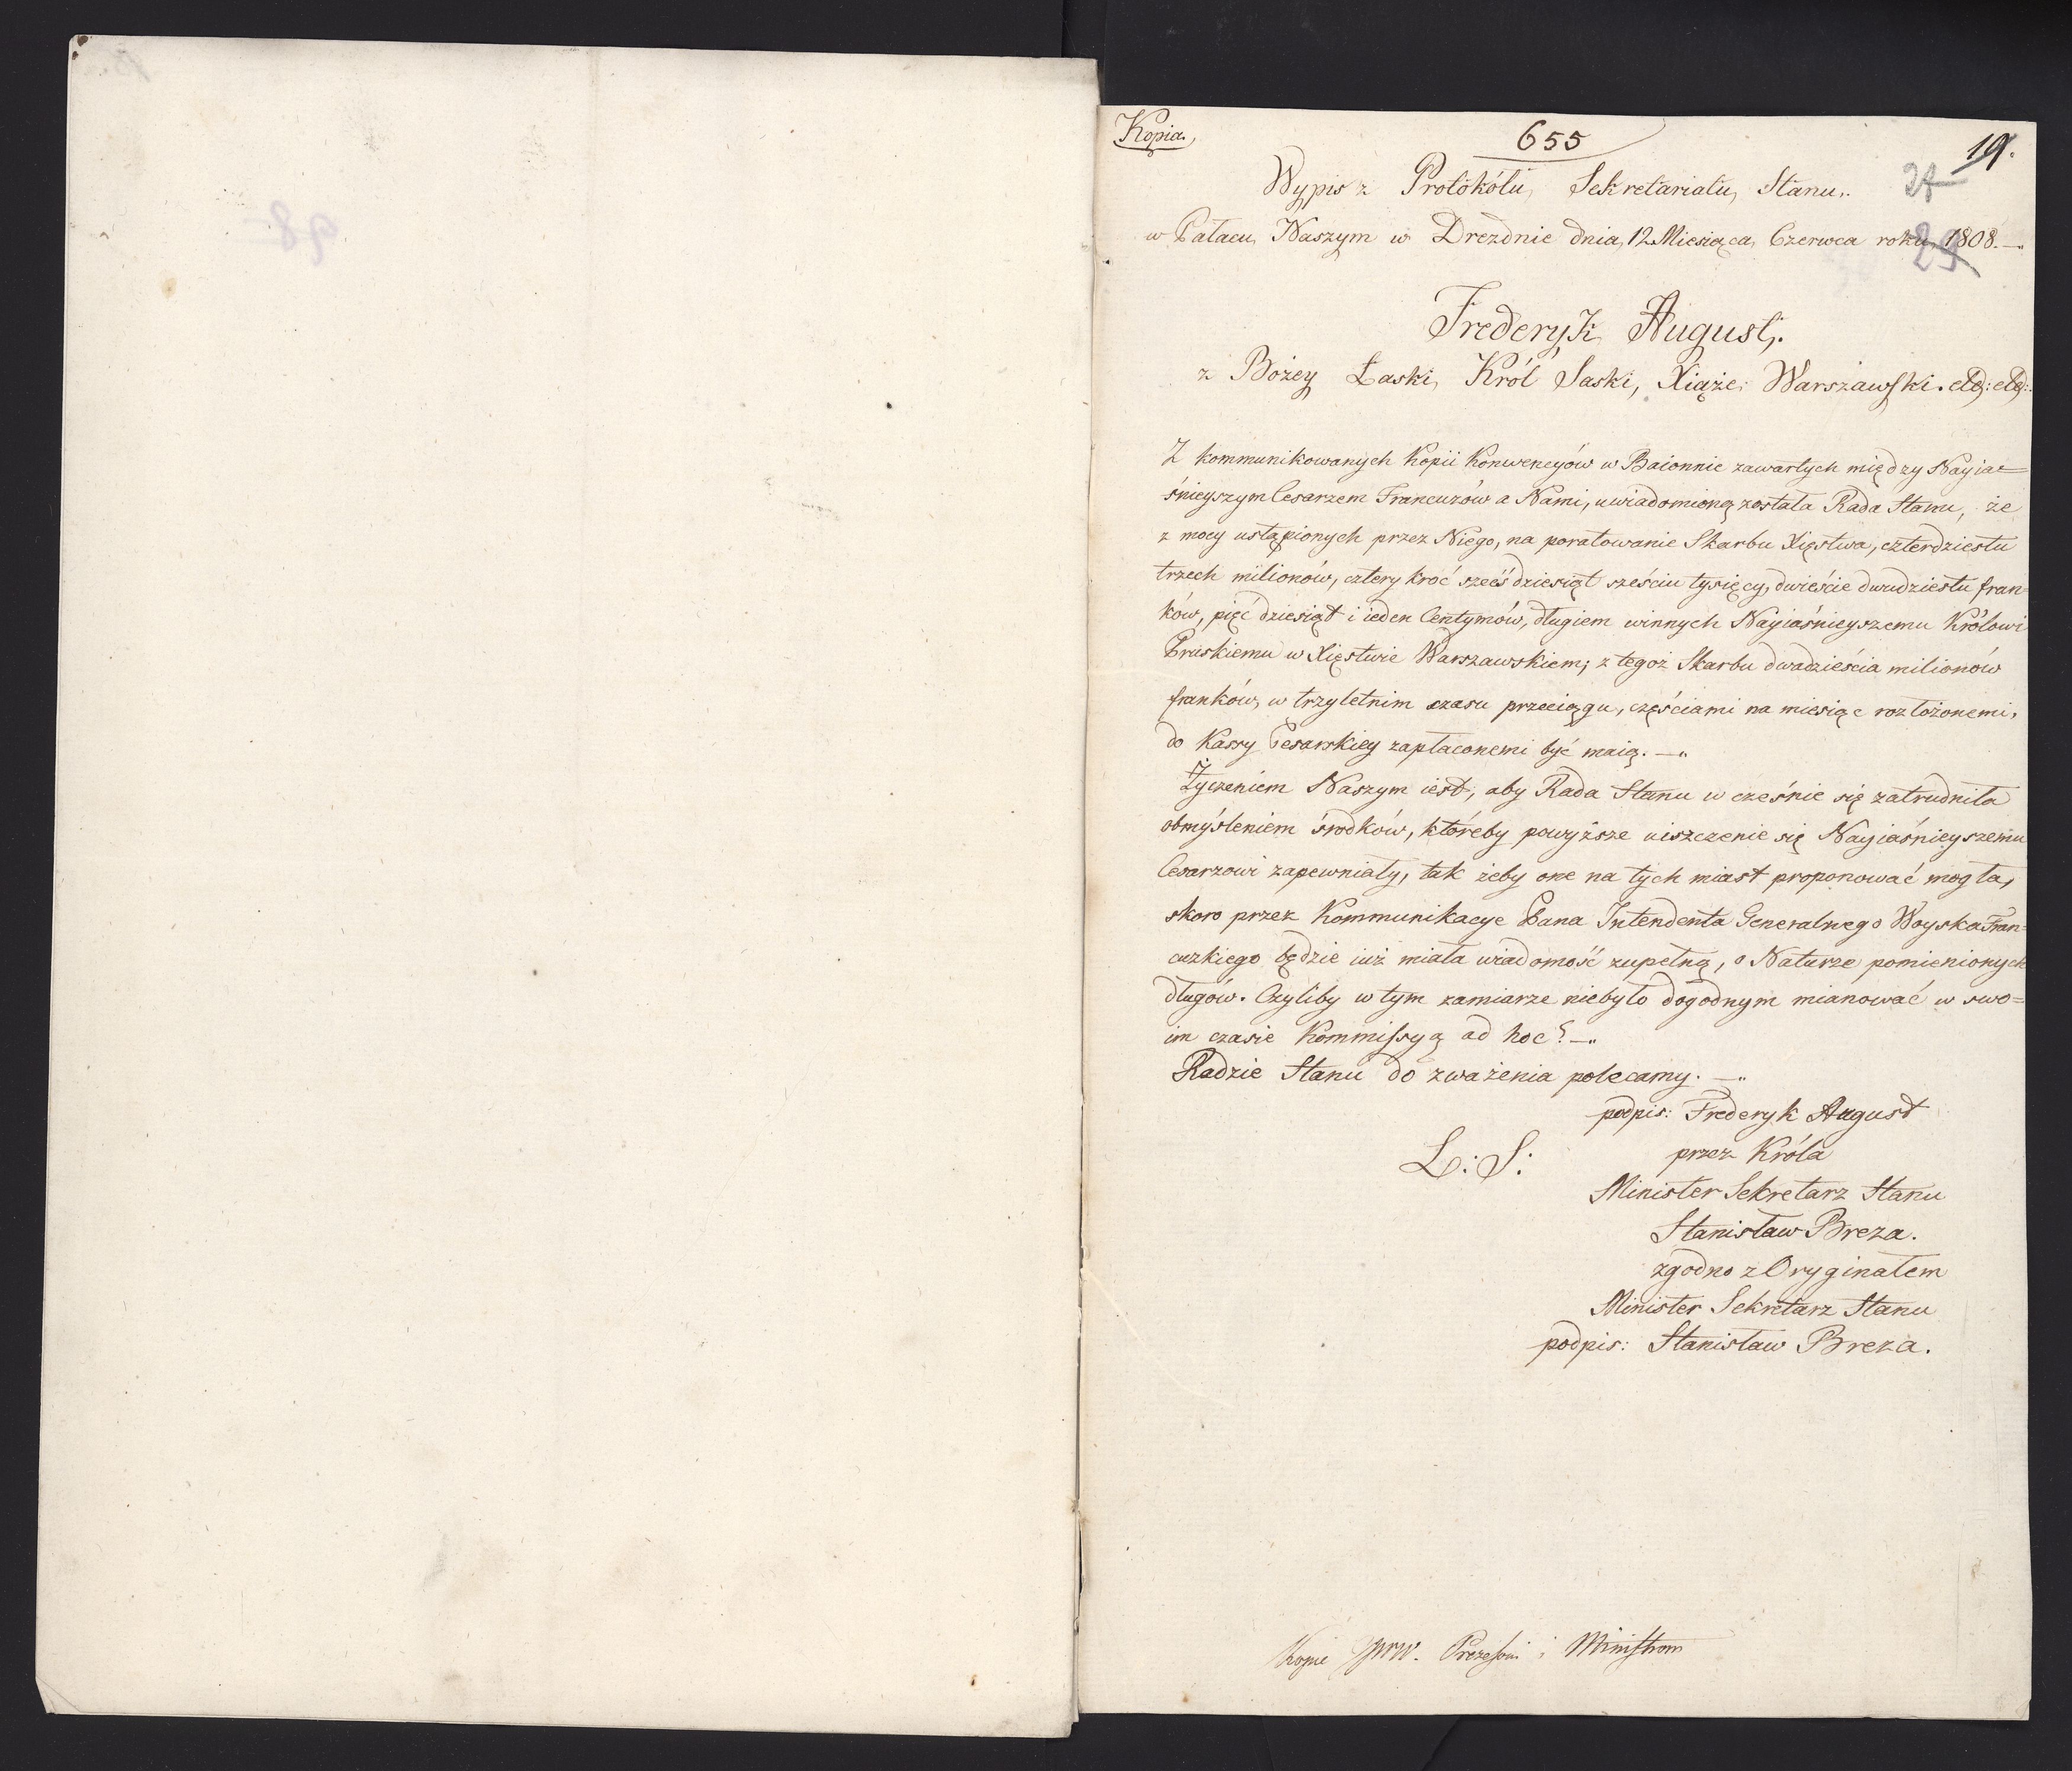 Kopia.
655
19.
24
29
Wypis z Protokółu Sekretariatu Stanu.
w Pałacu Naszym w Dreźdnie dnia 12 Miesiąca Czerwca roku 1808.
Frederyk August.
z Bożey Łaski Król Saski, Xiąże Warszawski. etc: etc:
Z kommunikowanych Kopii Konwencyów w Baionnie zawartych między Nayia=
śnieyszym Cesarzem Francuzów a Nami, uwiadomioną została Rada Stanu, że
z mocy ustąpionych przez Niego, na poratowanie Skarbu Xięstwa, czterdziestu
trzech milionów, cztery kroć sześćdziesiąt sześciu tysięcy, dwieście dwudziestu fran=
ków, pięćdziesiąt i ieden Centymów, długiem winnych Nayiaśnieyszemu Królowi
Pruskiemu w Xięstwie Warszawskiem; z tegoż Skarbu dwadzieścia milionów
franków, w trzyletnim czasu przeciągu, częściami na miesiąc rozłożonemi,
do Kassy Cesarskiey zapłaconemi być maią. —
Życzeniem Naszym iest, aby Rada Stanu w cześnie się zatrudniła
obmyśleniem środków, któreby powyższe uiszczenie się Nayiaśnieyszemu
Cesarzowi zapewniały, tak żeby one na tych miast proponować mogła,
skoro przez Kommunikacye Pana Intendenta Generalnego Woyska Fran=
cuzkiego będzie iuż miała wiadomość zupełną, o Naturze pomienionych
długów. Czyliby w tym zamiarze niebyło dogodnym mianować w swo=
im czasie Kommissyą ad hoc? —
Radzie Stanu do zważenia polecamy. —
podpis: Frederyk August
L: S:
przez Króla
Minister Sekretarz Stanu
Stanisław Breza.
zgodno z Oryginałem
Minister Sekretarz Stanu
podpis: Stanisław Breza.
Kopie JWW. Prezesowi i Ministrom
98